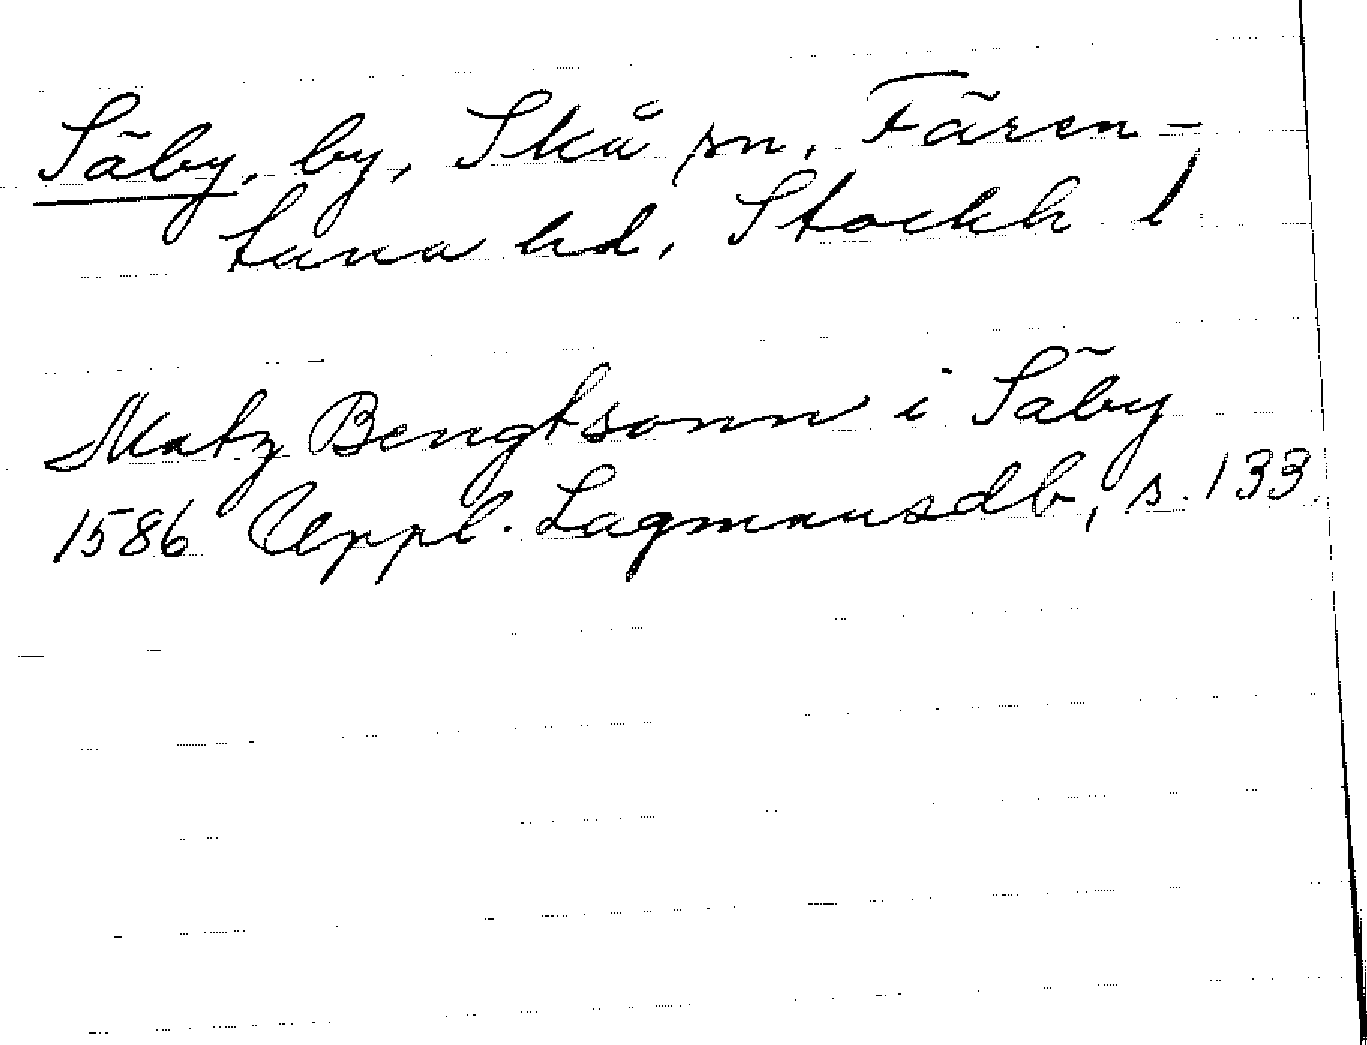 Säby, by, Skå sn, Fären-
tuna hd, Stockh l
Matz Bengtsonn i Säby
1586 Uppl. Lagmansdb, s. 133.